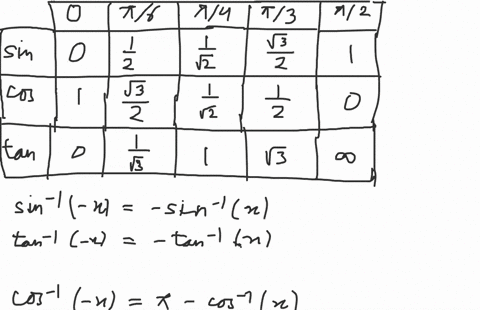 0 π/6 π/4 π/3 π/2
sin 0 1/2 1/√2 √3/2 1
cos 1 √3/2 1/√2 1/2 0
tan 0 1/√3 1 √3 ∞
sin⁻¹(-x) = -sin⁻¹(x)
tan⁻¹(-x) = -tan⁻¹(x)
cos⁻¹(-x) = π - cos⁻¹(x)